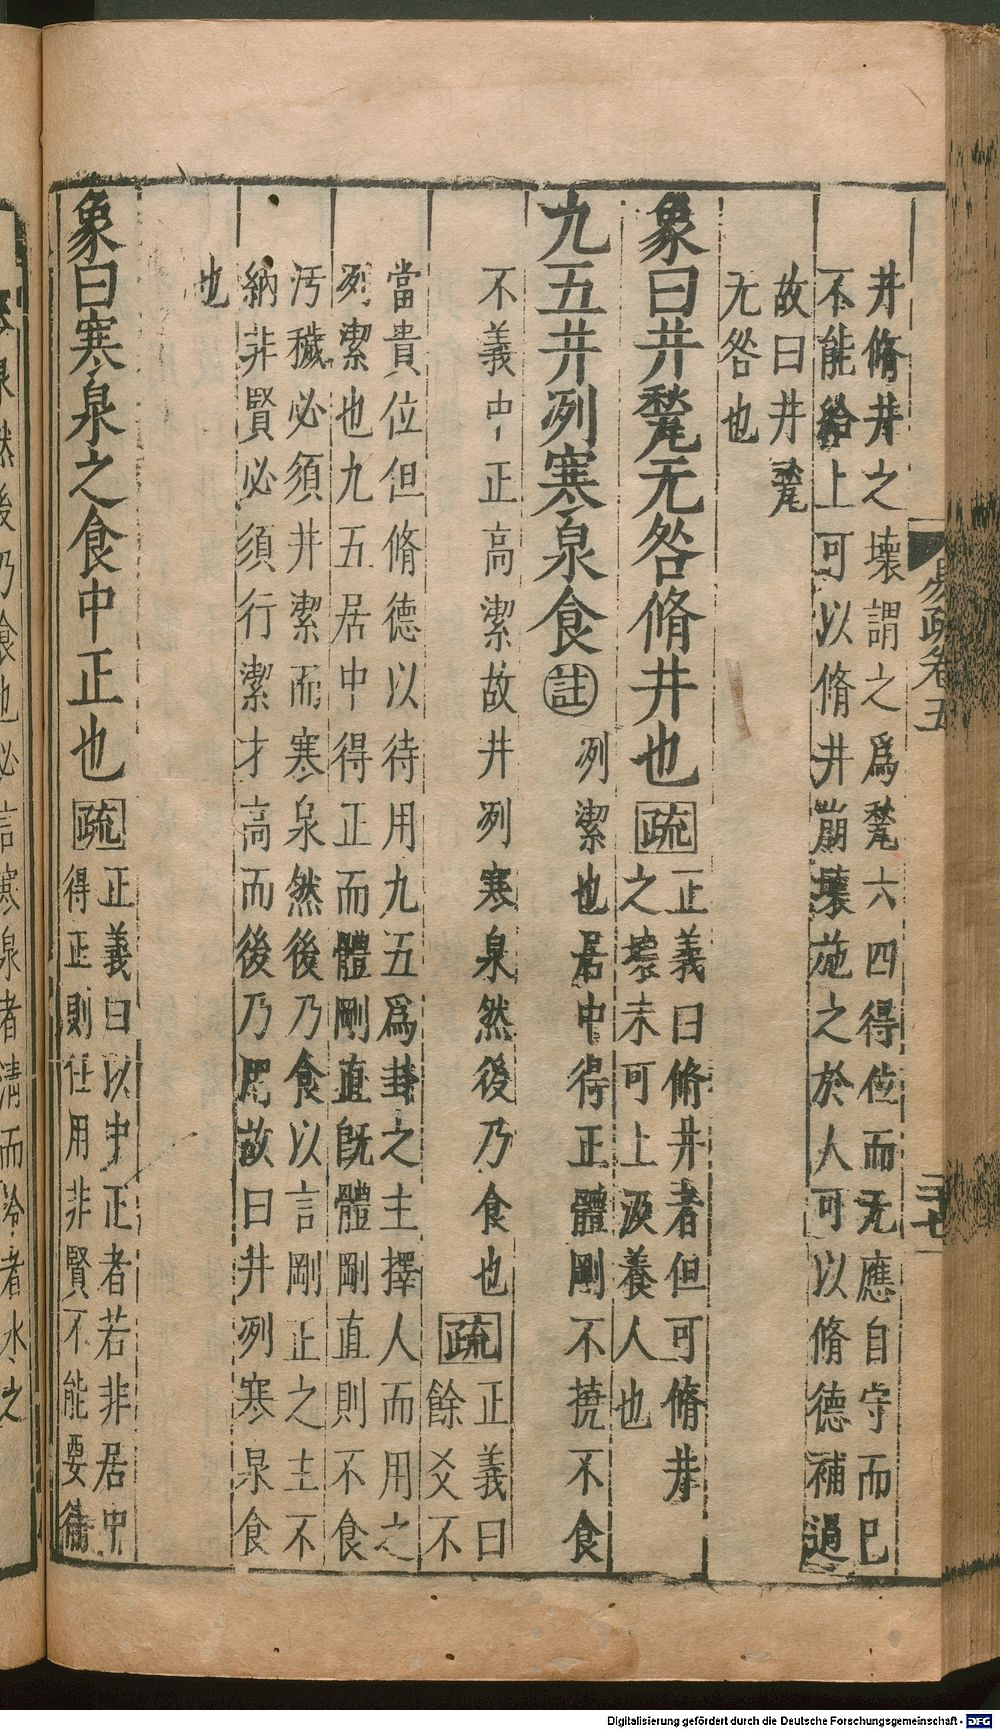 易疏卷五
二十七
井脩井之壞謂之爲甃六四得位而无應自守而已
不能給上可以脩井崩壞施之於人可以脩德補過
故曰井甃
无咎也
象曰井甃无咎脩井也疏正義曰脩井者但可脩井
之壞未可上汲養人也
九五井冽寒泉食註冽潔也居中得正體剛不撓不食
不義中正高潔故井冽寒泉然後乃食也疏正義曰
餘爻不
當貴位但脩德以待用九五爲卦之主擇人而用之
冽潔也九五居中得正而體剛直旣體剛直則不食
汚穢必須井潔而寒泉然後乃食以言剛正之主不
納非賢必須行潔才高而後乃用故曰井冽寒泉食
也
象曰寒泉之食中正也疏正義曰以中正者若非居中
得正則任用非賢不能要待
泉然後乃食也必言寒泉者清而冷者水之
Digitalisierung gefördert durch die Deutsche Forschungsgemeinschaft - DFG